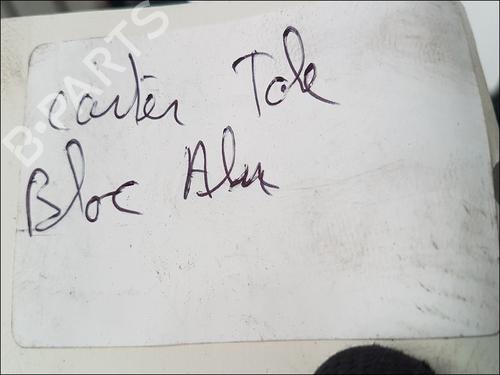 B-PARTS
carter Tole
Bloc Alu